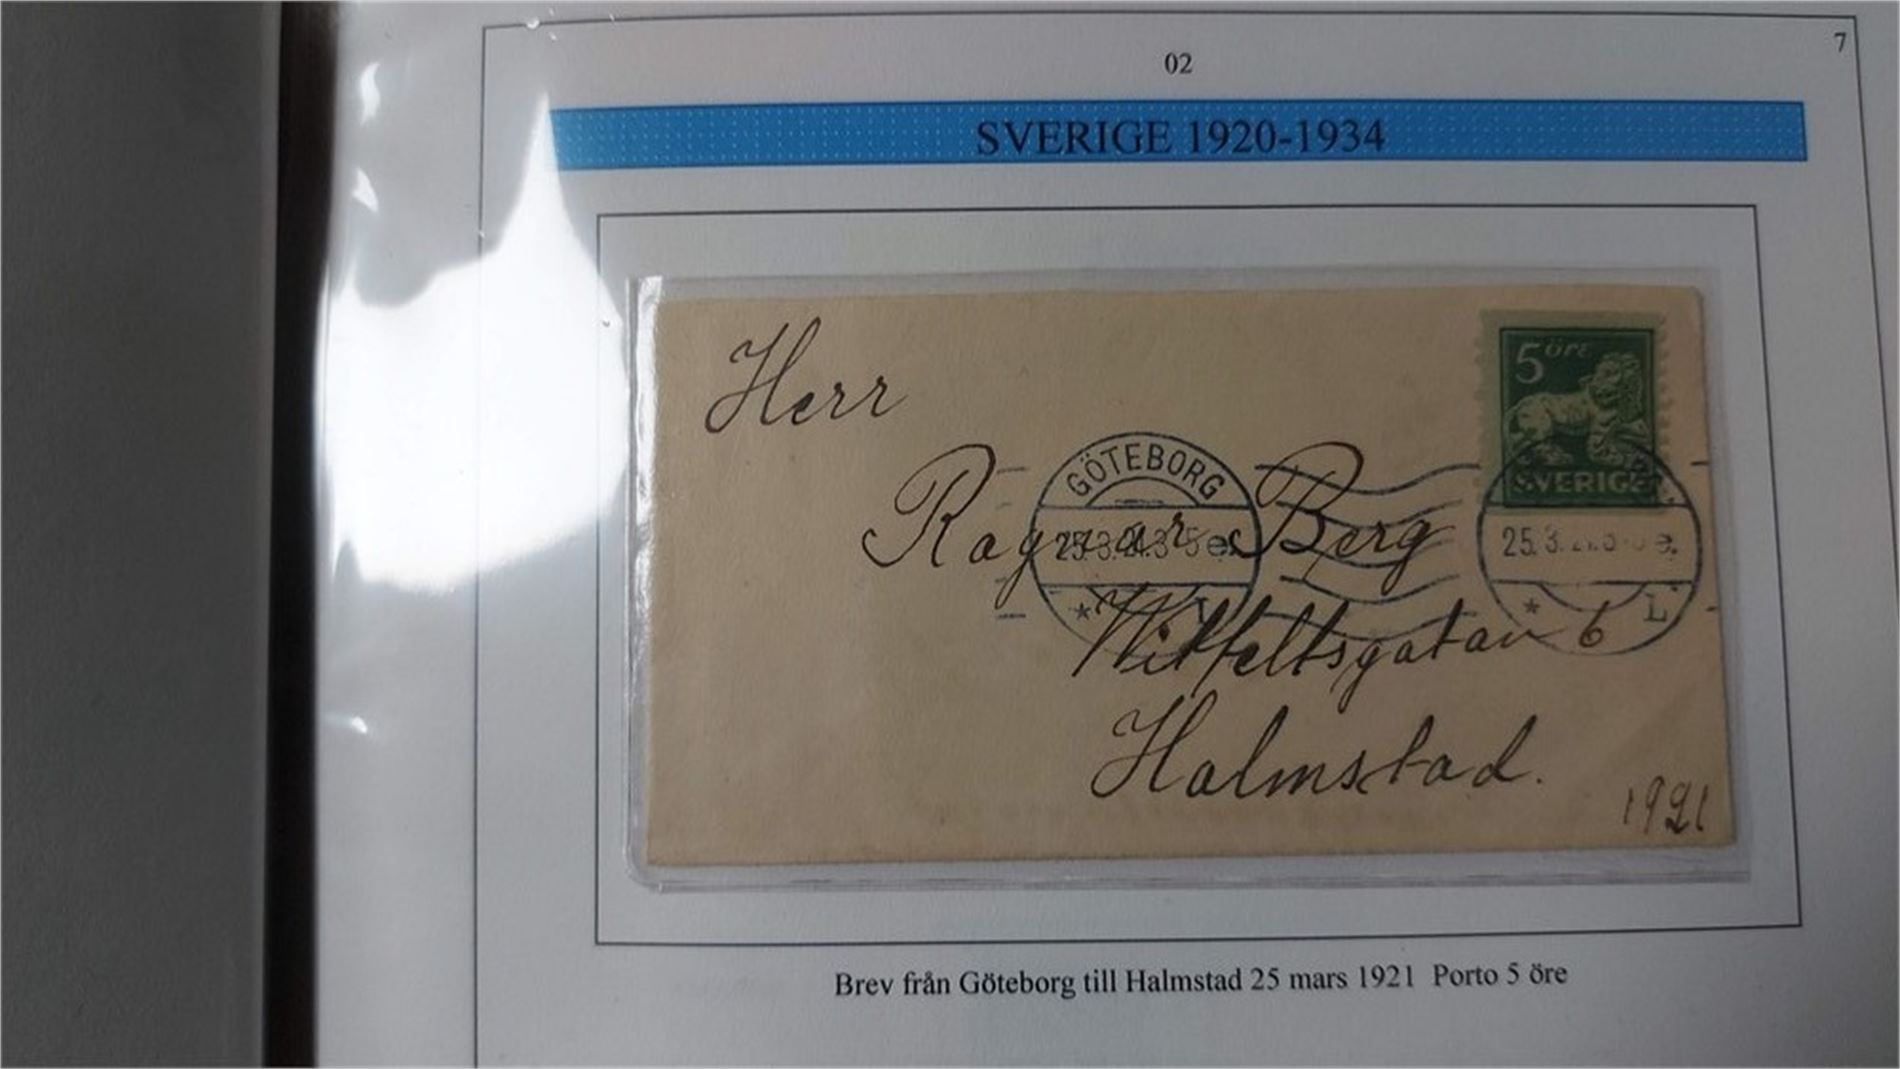 7
02
SVERIGE 1920-1934
Herr
5 öre
SVERIGE
GÖTEBORG
Ragnar Berg
25.3.21.3-5 e.
25.3.
e.
* L
* L
6
Halmstad.
1921
Brev från Göteborg till Halmstad 25 mars 1921 Porto 5 öre